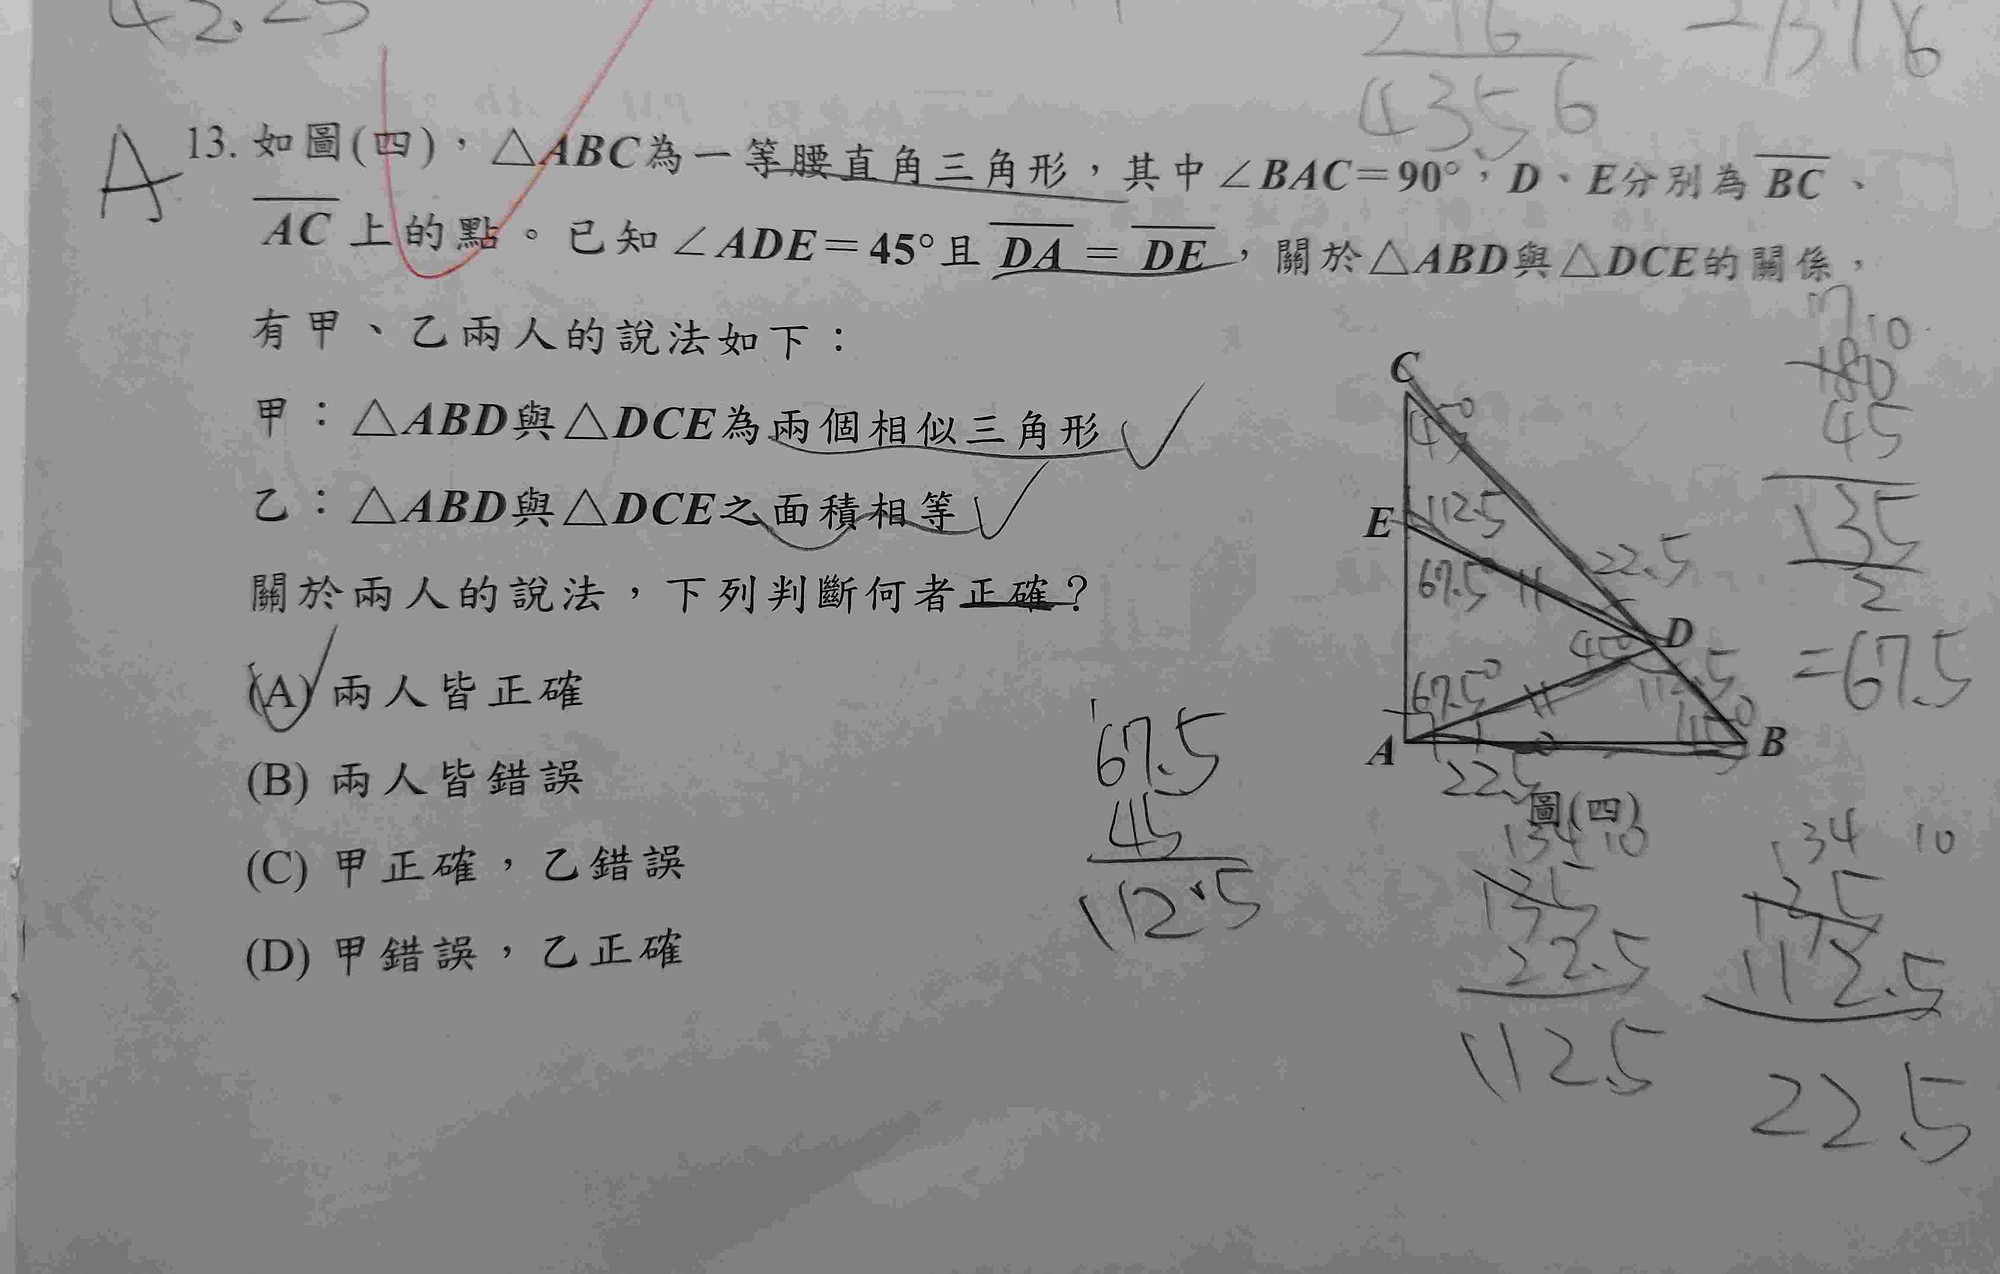 42.25
216
4356
A 13. 如圖(四)，△ABC為一等腰直角三角形，其中∠BAC=90°，D、E分別為BC、
AC上的點。已知∠ADE=45°且DA=DE，關於△ABD與△DCE的關係，
有甲、乙兩人的說法如下：
甲：△ABD與△DCE為兩個相似三角形
乙：△ABD與△DCE之面積相等
關於兩人的說法，下列判斷何者正確？
(A) 兩人皆正確
(B) 兩人皆錯誤
(C) 甲正確，乙錯誤
(D) 甲錯誤，乙正確
C
45°
E 112.5
67.5 22.5
45° D
67.5° 112.5
A B
22.5°
圖(四)
17 10
180
45
135
2
=67.5
1
67.5
45
112.5
134 10
135
22.5
112.5
134 10
135
112.5
22.5